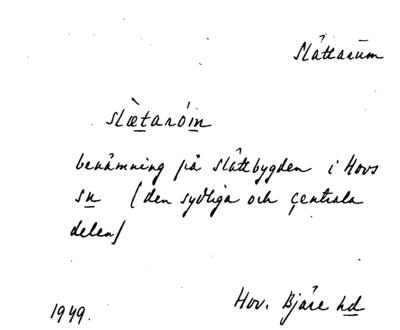 Slättarum
slæ̀taróin
benämning på slättbygden i Hovs
sn (den sydliga och centrala
delen)
1949. Hov. Bjäre hd